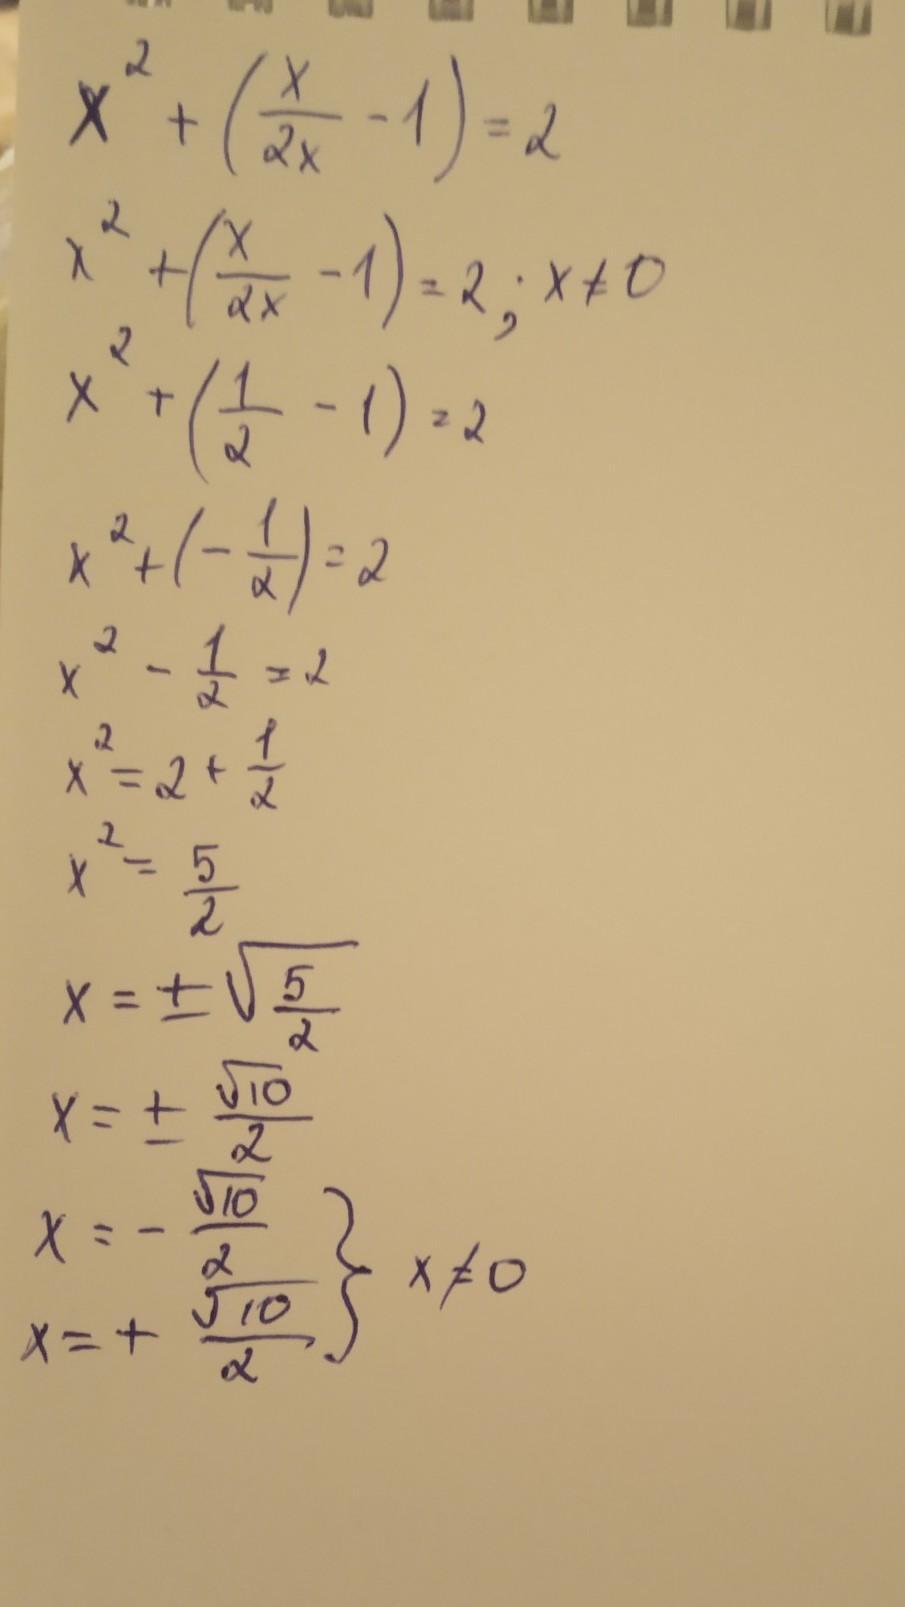 x² + (x/2x - 1) = 2
x² + (x/2x - 1) = 2 ; x ≠ 0
x² + (1/2 - 1) = 2
x² + (- 1/2) = 2
x² - 1/2 = 2
x² = 2 + 1/2
x² = 5/2
x = ± √(5/2)
x = ± √10/2
x = - √10/2 } x ≠ 0
x = + √10/2